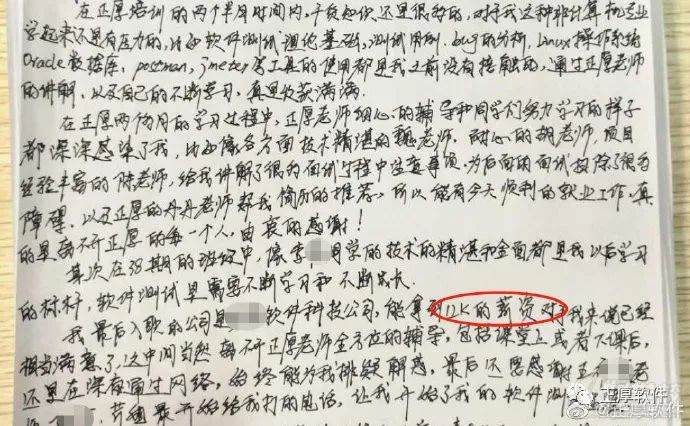 在正厚培训的两个半月时间内，干货知识还是很多的，对于我这种非计算机专业
学起来还是有压力的，比如软件测试理论基础，测试用例，bug的分析，Linux操作系统
Oracle数据库，postman，jmeter等工具的使用都是我之前没有接触的，通过正厚老师
的讲解，以及自己的不断学习，真是收获满满．
在正厚两个月的学习过程中，正厚老师细心的辅导和同学们努力学习的样子
都深深感染了我，比如像各方面技术精湛的魏老师．耐心的胡老师，项目
经验丰富的陈老师，给我讲解了很多面试过程中注意事项，为后面的面试扫除了很多
障碍．以及正厚的丹丹老师帮我简历的推荐，所以能有今天顺利的就业工作，真
的是离不开正厚的每一个人，由衷的感谢！
其次在38期的班级中，像李 同学的技术的精湛和全面都是我以后学习
的标杆，软件测试是需要不断学习和不断成长．
我最后入职的公司是 软件科技公司，能拿到12K的薪资对于我来说已经
相当满意了，这中间当然离不开正厚老师全方位的辅导，包括课堂上或者下课后，
还是在深夜通过网络，始终能为我排疑解惑，最后还思感谢正 老
师 ，芹 最开始给我打的电话，让我开始了我的软件测
正厚软件
@正厚软件